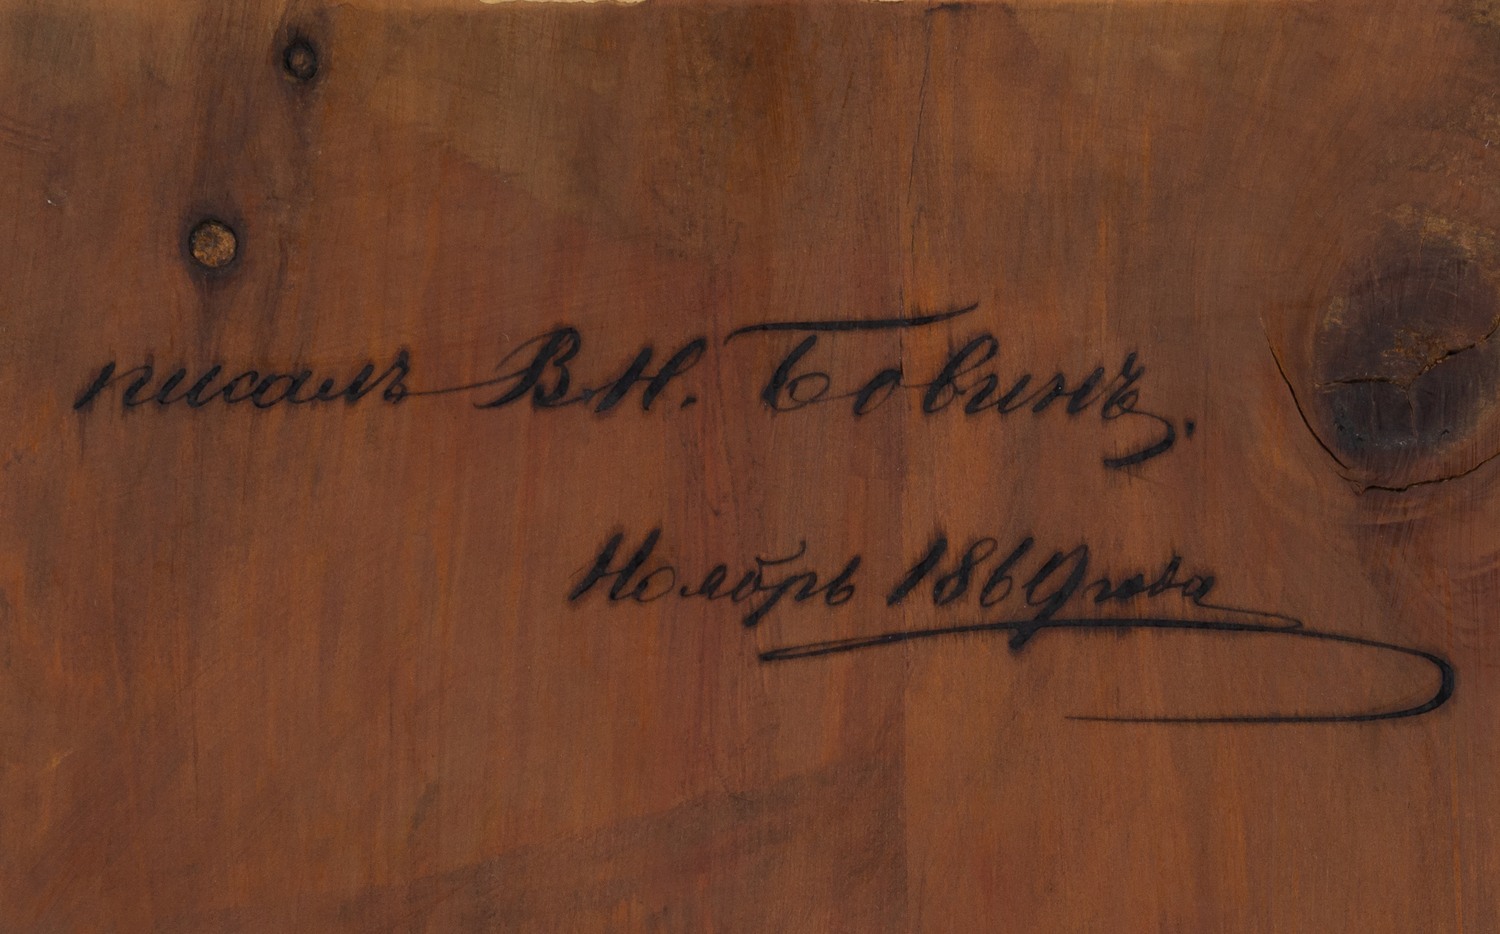 писалъ В Н. Бовинъ.
Ноябрь 1869 года